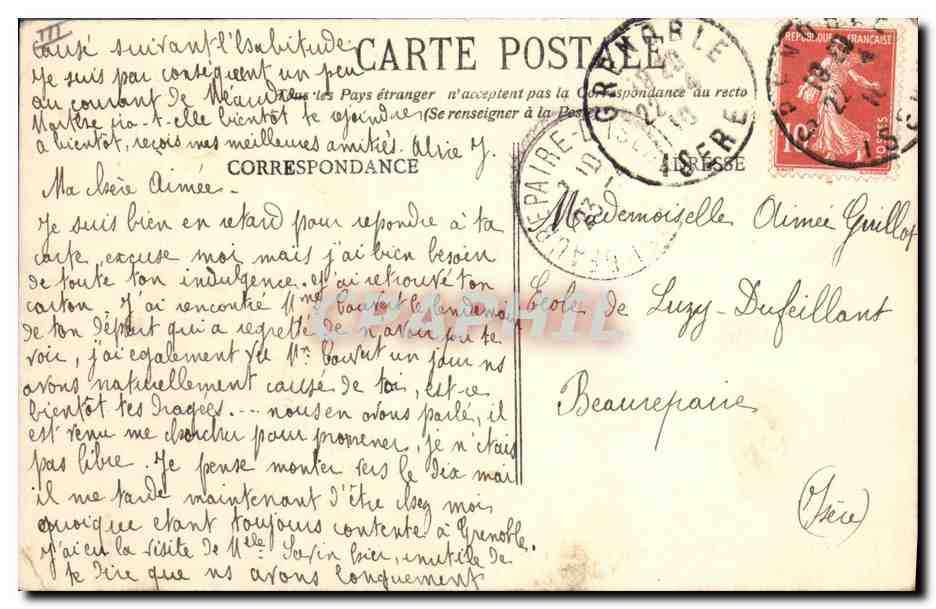 III
causé suivant l'habitude.
Je suis par conséquent un peu
au courant de Meaudre
Marthe ira-t-elle bientôt te rejoindre
à bientôt, reçois mes meilleures amitiés. Alice J.
CARTE POSTALE
Tous les Pays étranger n'acceptent pas la Correspondance au recto
(Se renseigner à la Poste)
CORRESPONDANCE
ADRESSE
GRENOBLE
ISERE
22
BEAUREPAIRE
ISERE
23
REPUBLIQUE FRANÇAISE
10
POSTES
GRENOBLE
ISERE
22
Ma chère Aimée.
Je suis bien en retard pour repondre à ta
carte, excuse moi mais j'ai bien besoin
de toute ton indulgence. et j'ai retrouvé ton
carton. J'ai rencontré Mme le lendemain
de ton départ qui a regretté de n'avoir pu te
voir, j'ai également vu Mr un jour ns
avons naturellement causé de toi, est-ce
bientôt tes dragées.... nous en avons parlé, il
est venu me chercher pour promener, je n'étais
pas libre. Je pense monter vers le dix mai
il me tarde maintenant d'être chez moi
quoique étant toujours contente à Grenoble.
J'ai eu la visite de Melle hier, inutile de
te dire que ns avons longuement
Mademoiselle Aimée Guillot
Ecole de Luzy-Dufeillant
Beaurepaire
(Isère)
CPAPHIL